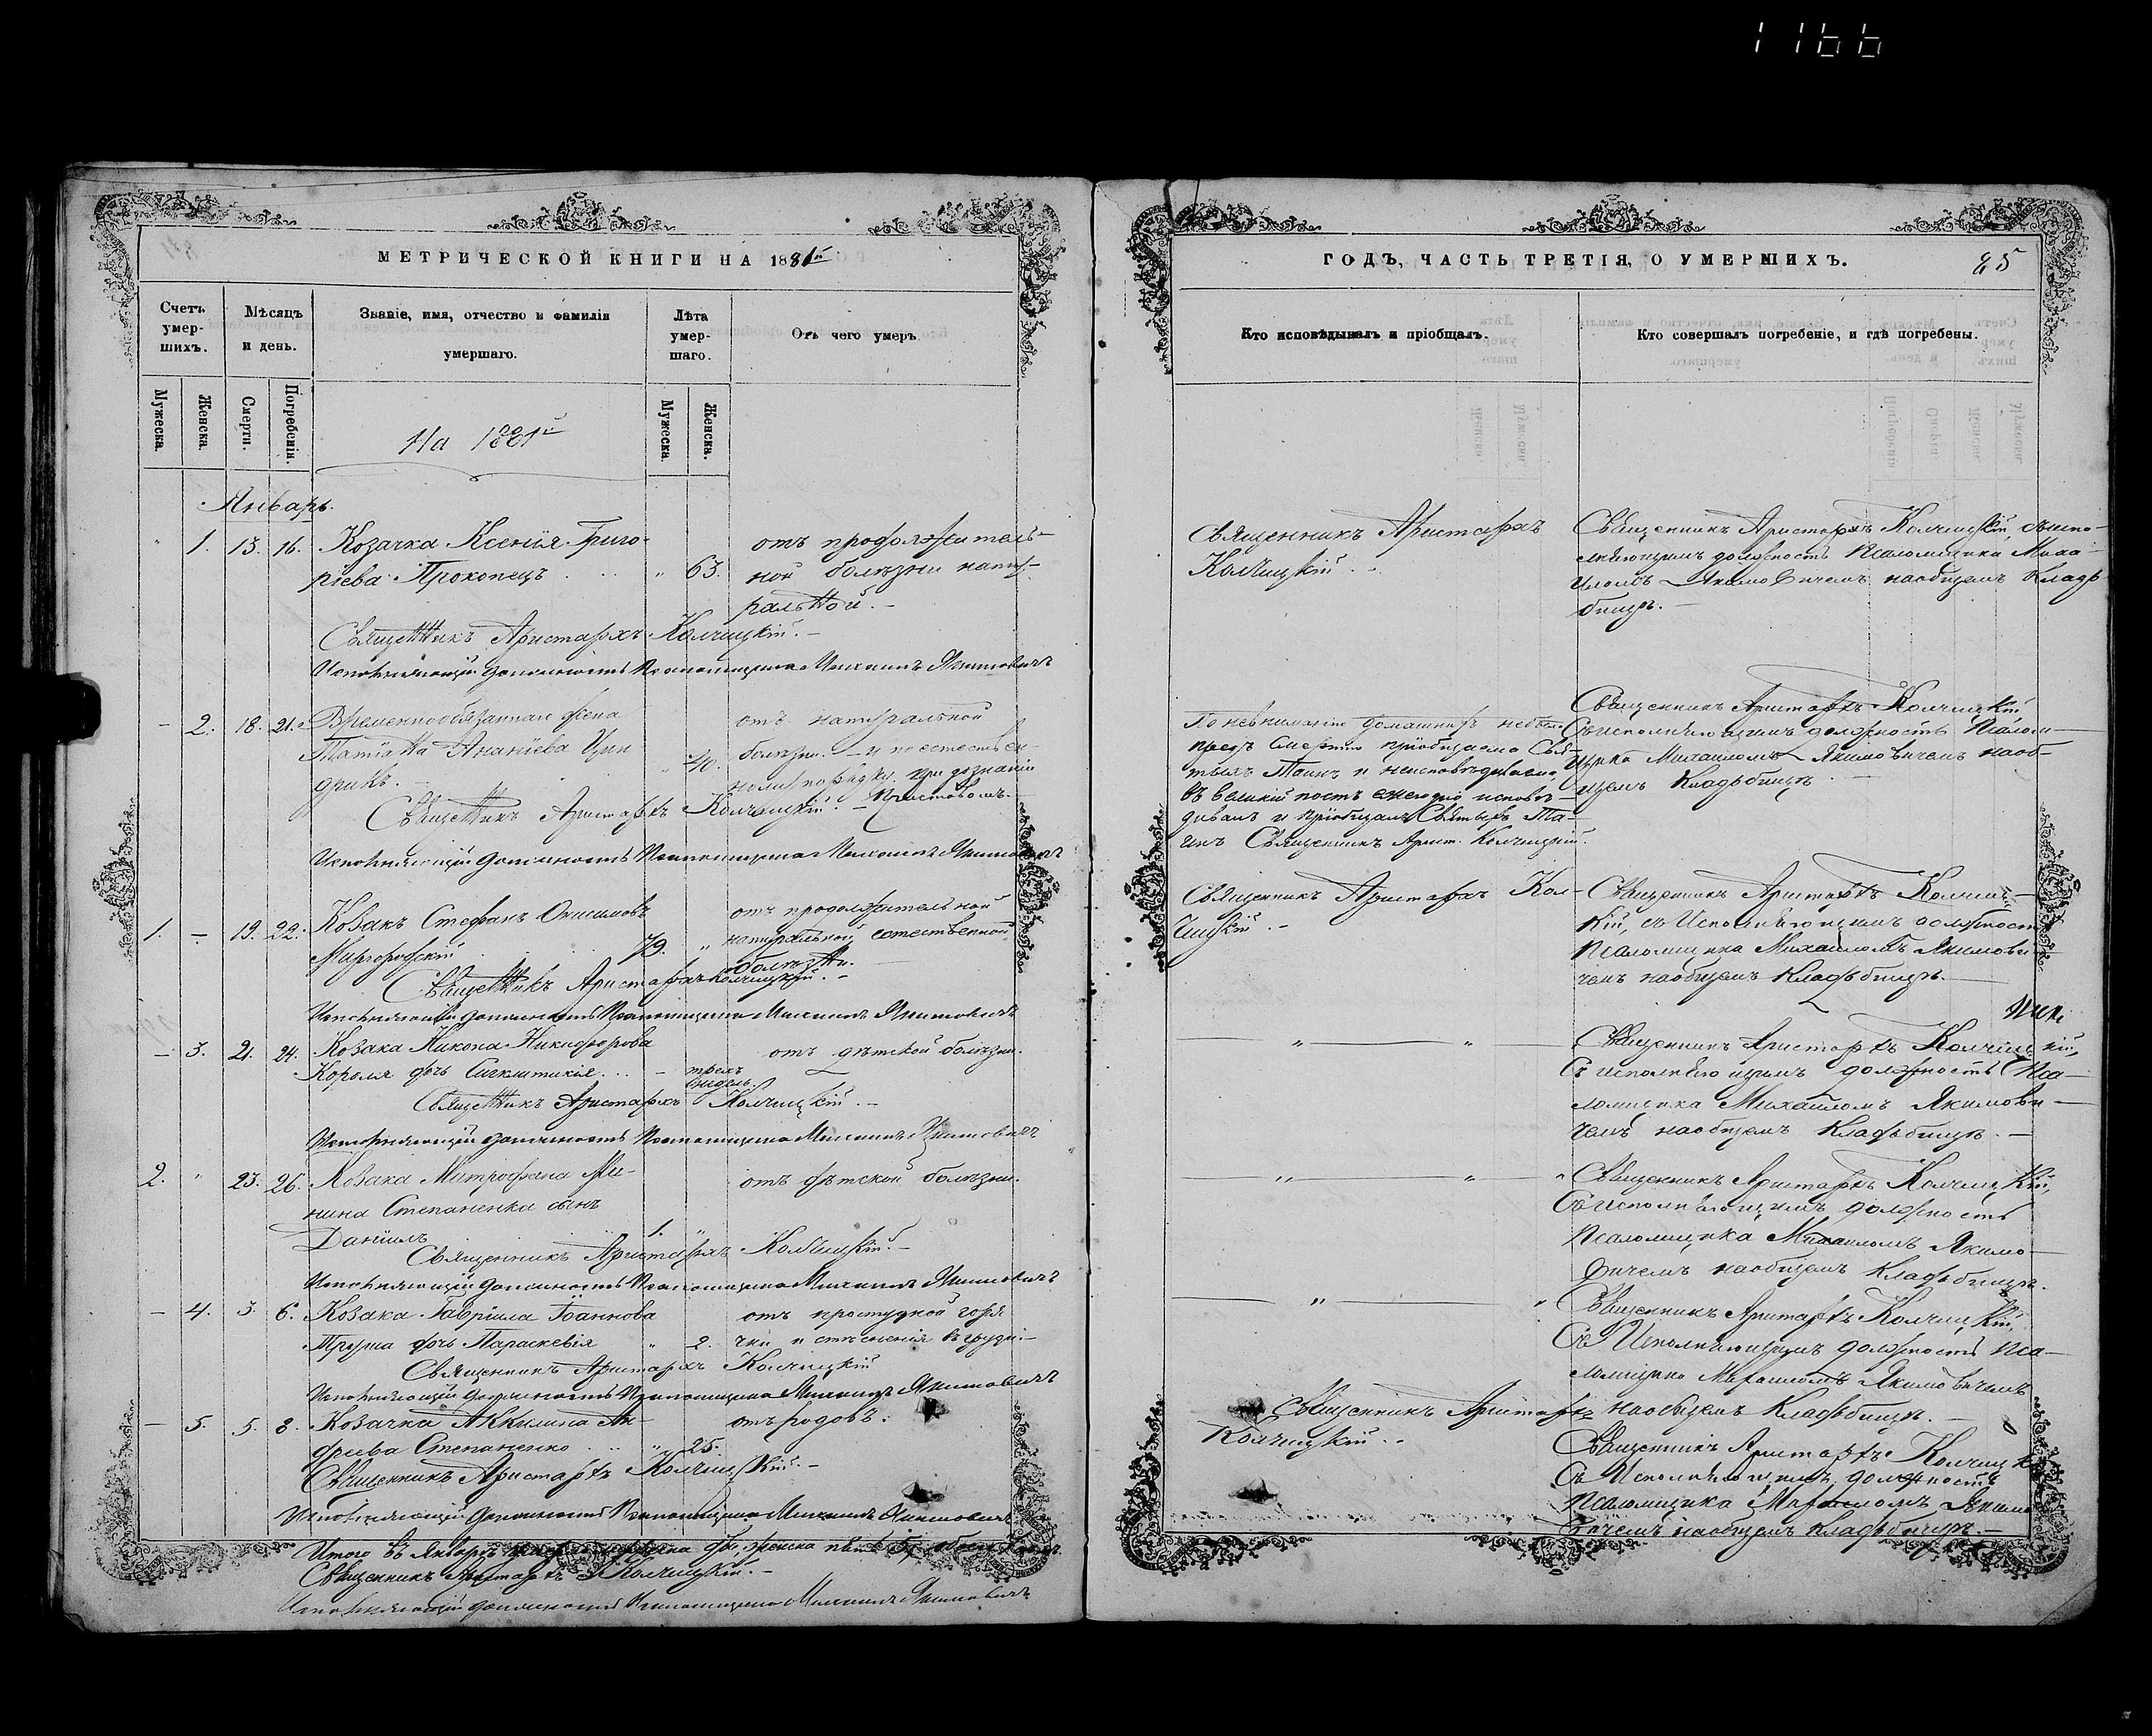 1166
МЕТРИЧЕСКОЙ КНИГИ НА 1881й
Счетъ умер-шихъ.
Мѣсяцъ и день.
Званіе, имя, отчество и фамилія умершаго.
Лѣта умер-шаго.
Отъ чего умеръ.
Мужеска.
Женска.
Смерти.
Погребенія.
Мужеска.
Женска.
На 1881й
Январь.
1. 13. 16. Козачка Ксенія Григо-
ріева Прокопецъ " 63.
отъ продолжитель-
ной болѣзни нату-
ральной.
Священникъ Аристархъ Колчицкій.
Исполняющій должность Псаломщика Михаилъ Якимовичъ
— 2. 18. 21. Временнообязанная жена
Татіана Ананіева
дрикъ. 40.
отъ натуральной
болѣзни. — и по естествен-
ному порядку. при дознаніи
Приставомъ.
Священникъ Аристархъ Колчицкій.
Исполняющій должность Псаломщика Михаилъ Якимовичъ
1. — 19. 22. Козакъ Стефанъ Онисимовъ
Миргородскій 79. "
отъ продолжительной
натуральной естественной
болѣзни.
Священникъ Аристархъ Колчицкій.
Исполняющій должность Псаломщика Михаилъ Якимовичъ
— 3. 21. 24. Козака Никона Никифорова
Короля дочь — трехъ недель.
отъ дѣтской болѣзни.
Священникъ Аристархъ Колчицкій.
Исполняющій должность Псаломщика Михаилъ Якимовичъ
2. " 23. 26. Козака Митрофана Ми-
нина Степаненка сынъ
Даніилъ 1. "
отъ дѣтской болѣзни.
Священникъ Аристархъ Колчицкій.
Исполняющій должность Псаломщика Михаилъ Якимовичъ
— 4. 3. 6. Козака Гавріила Іоаннова
Труша дочь Параскевія " 2.
отъ простудной горя
чки и стѣсненія въ груди
Священникъ Аристархъ Колчицкій
Исполняющій должность Псаломщика Михаилъ Якимовичъ
— 5. 5. 8. Козачка Аккилина Ан-
дреева Степаненко " 25.
отъ родовъ.
Священникъ Аристархъ Колчицкій.
Исполняющій должность Псаломщика Михаилъ Якимовичъ
Итого въ Январѣ
Священникъ Аристархъ Колчицкій.
Исполняющій должность Псаломщика Михаилъ Якимовичъ
ГОДЪ, ЧАСТЬ ТРЕТІЯ, О УМЕРШИХЪ.
85
Кто исповѣдывалъ и пріобщалъ.
Кто совершалъ погребеніе, и гдѣ погребены.
Священникъ Аристархъ
Колчицкій.
Священникъ Аристархъ Колчицкій, съ испо-
лняющимъ должность Псаломщика Миха-
иломъ Якимовичемъ на общемъ кладъ
бищѣ.
По невниманію домашнихъ не была
предъ Смертію пріобщаема Свя-
тыхъ Таинъ и неисповѣдываема,
въ великій постъ ежегодно исповѣ-
дывалъ и пріобщалъ Святыхъ Та-
инъ Священникъ Арист. Колчицкій.
Священникъ Аристархъ Колчицкій
Съ исполняющимъ должность Псалом-
щика Михаиломъ Якимовичемъ на об-
щемъ Кладьбищѣ
Священникъ Аристархъ Кол-
чицкій.
Священникъ Аристархъ Колчиц-
кій, съ Исполняющимъ должность
Псаломщика Михаиломъ Якимови-
чемъ на общемъ Кладьбищѣ.
" "
Священникъ Аристархъ Колчицкій,
Съ исполняющимъ должность Пса-
ломщика Михаиломъ Якимови-
чемъ на общемъ Кладьбищѣ.
" " "
Священникъ Аристархъ Колчицкій,
Съ исполняющимъ должность
Псаломщика Михаиломъ Якимо-
вичемъ на общемъ Кладьбищѣ.
" "
Священникъ Аристархъ Колчицкій,
Съ Исполняющимъ должность Пса-
ломщика Михаиломъ Якимовичемъ
на общемъ Кладьбищѣ.
Священникъ Аристархъ
Колчицкій.
Священникъ Аристархъ Колчицк
Съ Исполняющимъ должность
Псаломщика Михаиломъ Якимо
вичемъ на общемъ Кладьбищѣ.